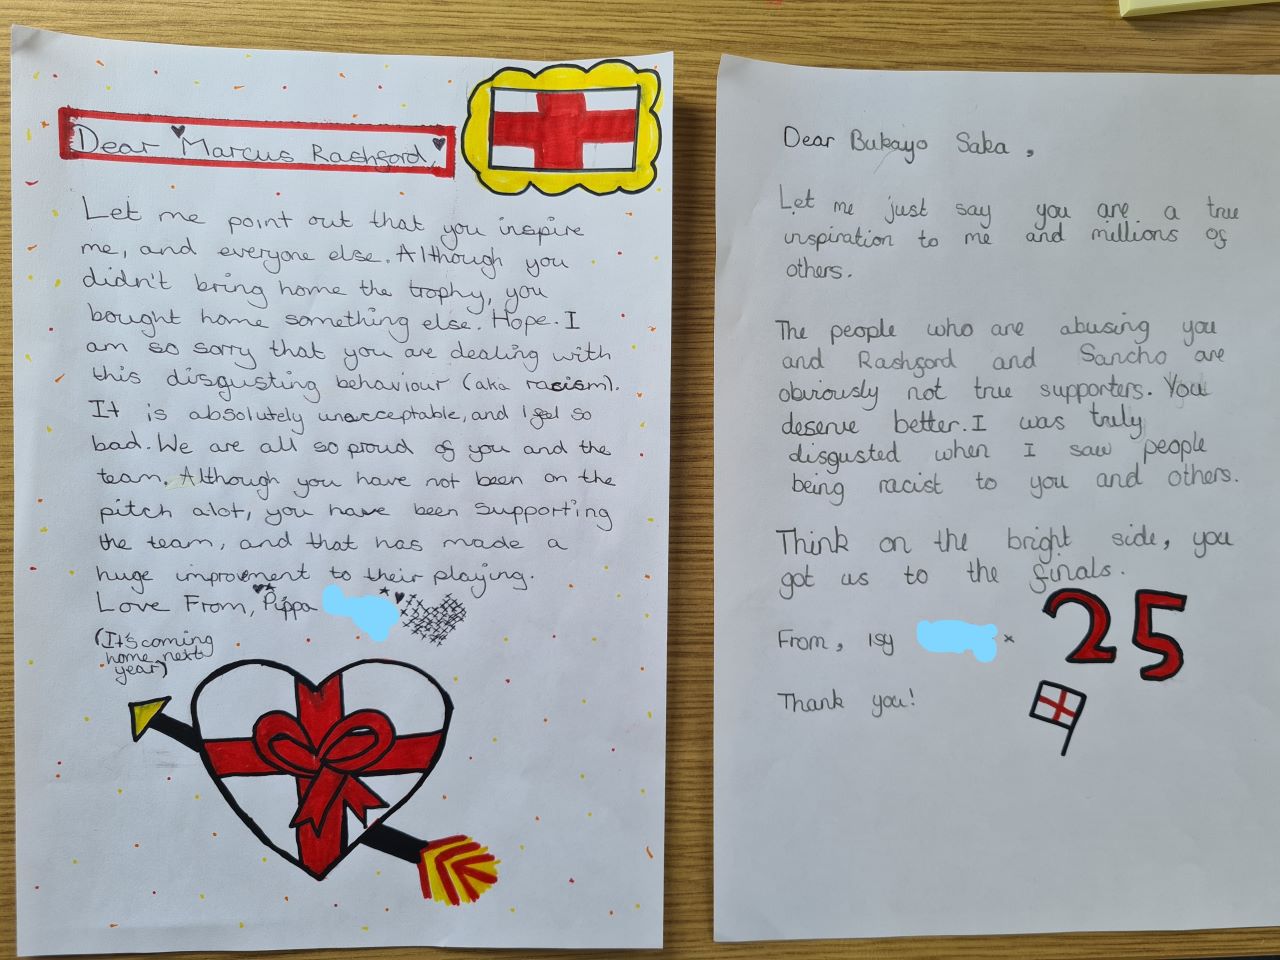 Dear Marcus Rashford,
Let me point out that you inspire
me, and everyone else. Although you
didn't bring home the trophy, you
bought home something else. Hope. I
am so sorry that you are dealing with
this disgusting behaviour (aka racism).
It is absolutely unacceptable, and I feel so
bad. We are all so proud of you and the
team. Although you have not been on the
pitch alot, you have been supporting
the team, and that has made a
huge improvment to their playing.
Love From, Pippa
(It's coming
home next
year)
Dear Bukayo Saka,
Let me just say you are a true
inspiration to me and millions of
others.
The people who are abusing you
and Rashford and Sancho are
obviously not true supporters. You
deserve better. I was truly
disgusted when I saw people
being racist to you and others.
Think on the bright side, you
got us to the finals.
From, Isy x
25
Thank you!